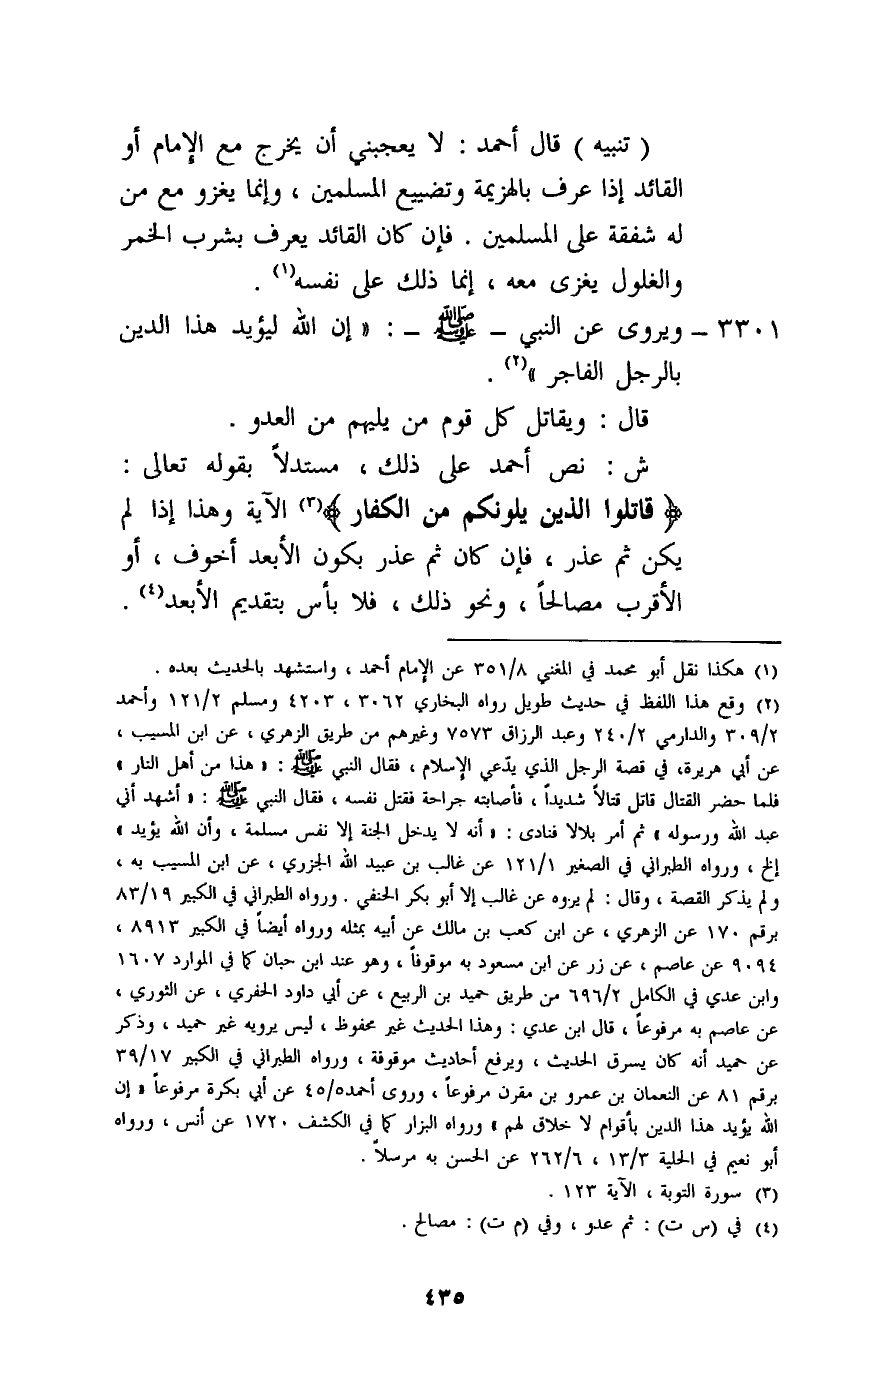 ( تنبيه ) قال أحمد : لا يعجبني أن يخرج مع الإمام أو
القائد إذا عرف بالهزيمة وتضييع المسلمين ، وإنما يغزو مع من
له شفقة على المسلمين . فإن كان القائد يعرف بشرب الخمر
والغلول يغزى معه ، إنما ذلك على نفسه(١) .
٣٣٠١ ـ ويروى عن النبي ـ ﷺ ـ : « إن الله ليؤيد هذا الدين
بالرجل الفاجر »(٢) .
قال : ويقاتل كل قوم من يليهم من العدو .
ش : نص أحمد على ذلك ، مستدلاً بقوله تعالى :
﴿ قاتلوا الذين يلونكم من الكفار ﴾(٣) الآية وهذا إذا لم
يكن ثم عذر ، فإن كان ثم عذر بكون الأبعد أخوف ، أو
الأقرب مصالحاً ، ونحو ذلك ، فلا بأس بتقديم الأبعد(٤) .
(١) هكذا نقل أبو محمد في المغني ٣٥١/٨ عن الإمام أحمد ، واستشهد بالحديث بعده .
(٢) وقع هذا اللفظ في حديث طويل رواه البخاري ٣٠٦٢ ، ٤٢٠٣ ومسلم ١٢١/٢ وأحمد
٣٠٩/٢ والدارمي ٢٤٠/٢ وعبد الرزاق ٧٥٧٣ وغيرهم من طريق الزهري ، عن ابن المسيب ،
عن أبي هريرة، في قصة الرجل الذي يدّعي الإسلام ، فقال النبي ﷺ : « هذا من أهل النار »
فلما حضر القتال قاتل قتالاً شديداً ، فأصابته جراحة فقتل نفسه ، فقال النبي ﷺ : « أشهد أني
عبد الله ورسوله » ثم أمر بلالا فنادى : « أنه لا يدخل الجنة إلا نفس مسلمة ، وأن الله يؤيد »
إلخ ، ورواه الطبراني في الصغير ١٢١/١ عن غالب بن عبيد الله الجزري ، عن ابن المسيب به ،
ولم يذكر القصة ، وقال : لم يروه عن غالب إلا أبو بكر الحنفي . ورواه الطبراني في الكبير ٨٣/١٩
برقم ١٧٠ عن الزهري ، عن ابن كعب بن مالك عن أبيه بمثله ورواه أيضاً في الكبير ٨٩١٣ ،
٩٠٩٤ عن عاصم ، عن زر عن ابن مسعود به موقوفاً ، وهو عند ابن حبان كما في الموارد ١٦٠٧
وابن عدي في الكامل ٦٩٦/٢ من طريق حميد بن الربيع ، عن أبي داود الحفري ، عن الثوري ،
عن عاصم به مرفوعاً ، قال ابن عدي : وهذا الحديث غير محفوظ ، ليس يرويه غير حميد ، وذكر
عن حميد أنه كان يسرق الحديث ، ويرفع أحاديث موقوفة ، ورواه الطبراني في الكبير ٣٩/١٧
برقم ٨١ عن النعمان بن عمرو بن مقرن مرفوعاً ، وروى أحمد٤٥/٥ عن أبي بكرة مرفوعاً « إن
الله يؤيد هذا الدين بأقوام لا خلاق لهم » ورواه البزار كما في الكشف ١٧٢٠ عن أنس ، ورواه
أبو نعيم في الحلية ١٣/٣ ، ٢٦٢/٦ عن الحسن به مرسلاً .
(٣) سورة التوبة ، الآية ١٢٣ .
(٤) في (س ت) : ثم عدو ، وفي (م ت) : مصالح .
٤٣٥